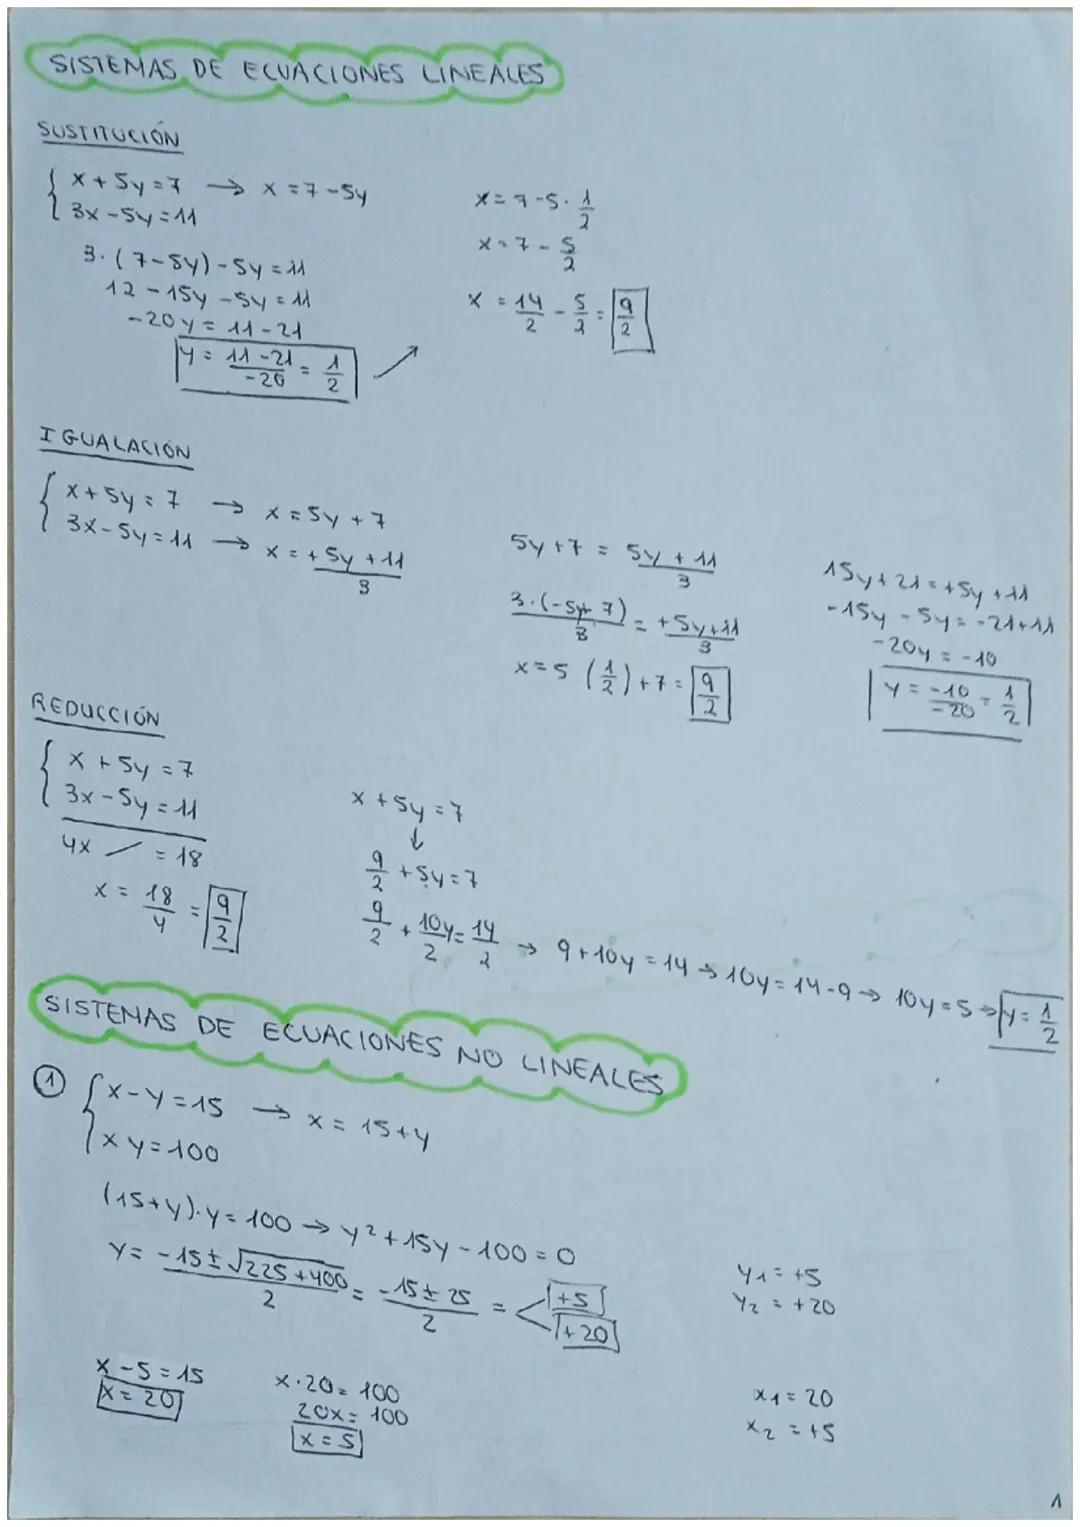 SISTEMAS DE ECUACIONES LINEALES
SUSTITUCIÓN
x + 5y = 7 → x = 7 - 5y
3x - 5y = 11
3·(7-5y) - 5y = 11
12 - 15y - 5y = 11
-20y = 11 - 21
y = 11-21/-20 = 1/2
x = 7 - 5 · 1/2
x = 7 - 5/2
x = 14/2 - 5/2 = 9/2
IGUALACIÓN
x + 5y = 7 → x = 5y + 7
3x - 5y = 11 → x = +5y+11/3
5y + 7 = 5y + 11/3
3·(-5y+7)/3 = +5y+11/3
x = 5 (1/2) + 7 = 9/2
15y + 21 = +5y + 11
-15y - 5y = -21+11
-20y = -10
y = -10/-20 = 1/2
REDUCCIÓN
x + 5y = 7
3x - 5y = 11
4x / = 18
x = 18/4 = 9/2
x + 5y = 7
↓
9/2 + 5y = 7
9/2 + 10y/2 = 14/2 → 9 + 10y = 14 → 10y = 14 - 9 → 10y = 5 → y = 1/2
SISTEMAS DE ECUACIONES NO LINEALES
1
x - y = 15 → x = 15 + y
xy = 100
(15+y)·y = 100 → y² + 15y - 100 = 0
y = -15 ± √225+400/2 = -15 ± 25/2 = < +5
+20
y1 = +5
y2 = +20
x - 5 = 15
x = 20
x · 20 = 100
20x = 100
x = 5
x1 = 20
x2 = +5
1